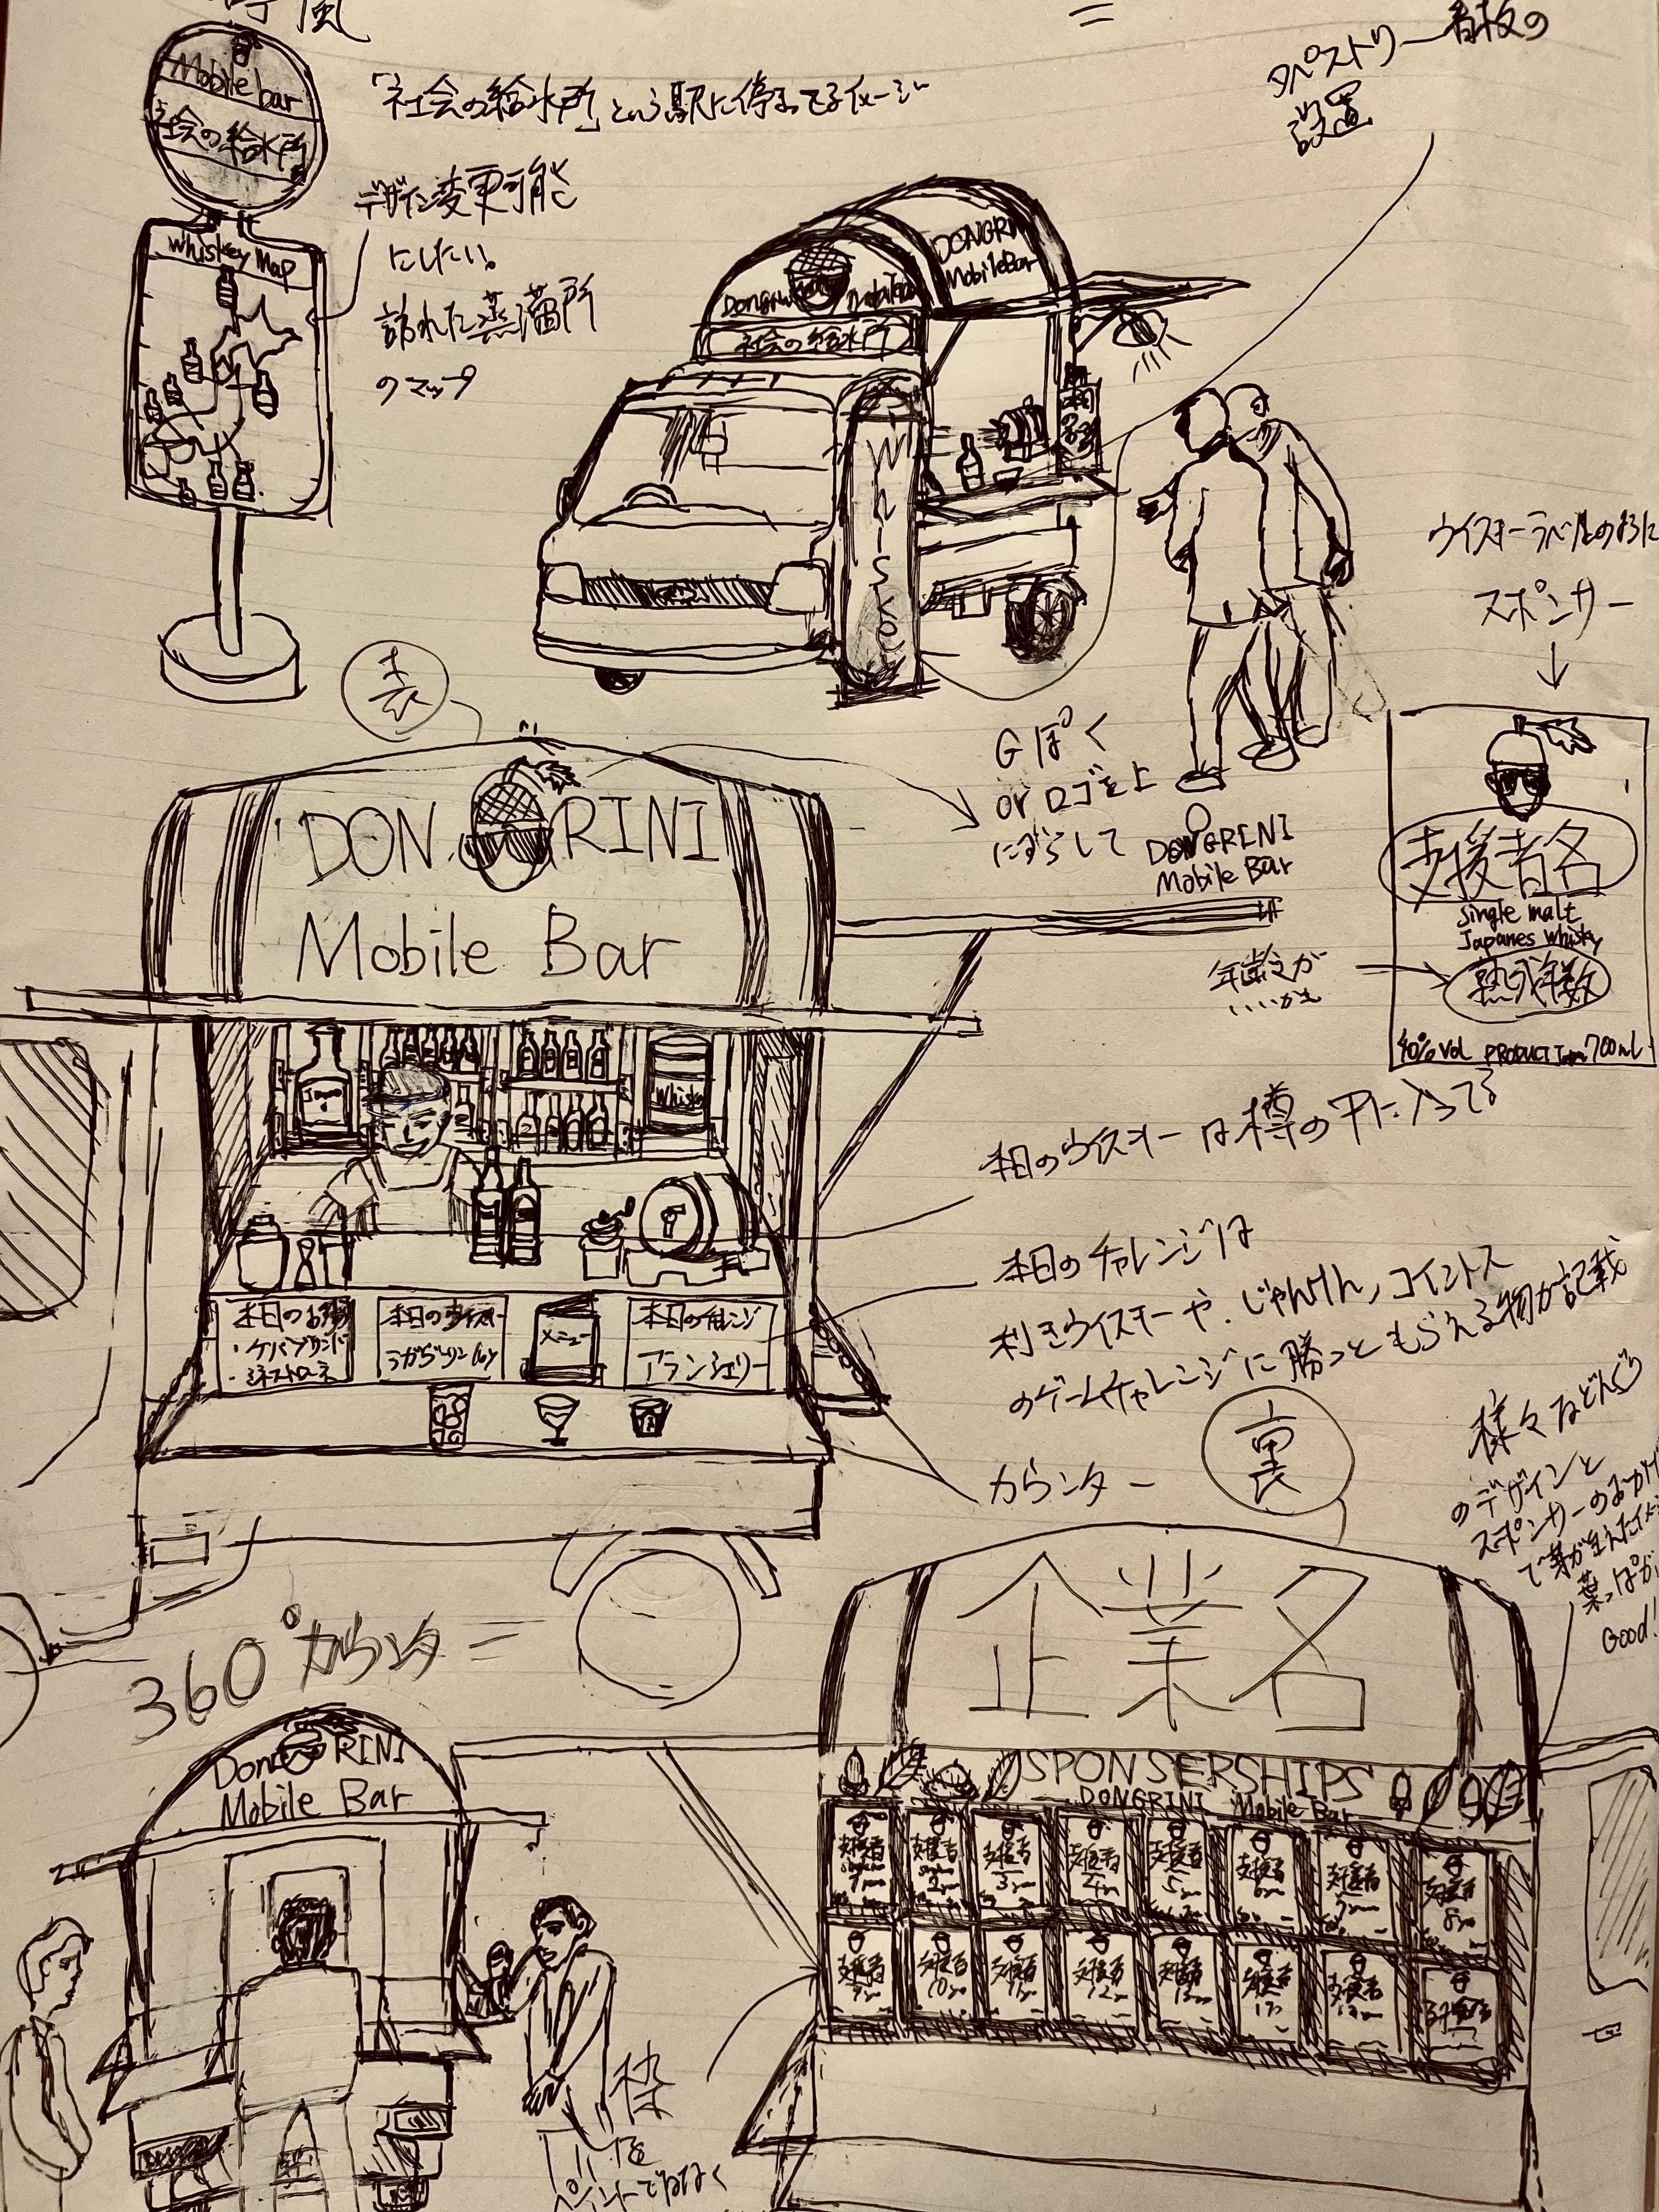 風
Mobile bar
社会の給水所
「社会の給水所」という駅に停まってるイメージ
デザイン変更可能
にしたい。
訪れた蒸溜所
のマップ
Whiskey Map
タペストリー看板の
設置
DONGRINI
Mobile Bar
社会の給水所
Whiskey
ウイスキーラベルのように
スポンサー
表
DONGRINI
Mobile Bar
Gぽく
or ロゴを上
にずらして
DONGRINI
Mobile Bar
支援者名
Single malt
Japanes Whisky
熟成年数
40% Vol PRODUCT 700ml
年齢が
いいかも
Whisky
本日のウイスキーは樽の中に入ってる
本日のチャレンジは
利きウイスキーや、じゃんけん、コイントス
のゲームチャレンジに勝つともらえる物が記載
本日の
・ケバブサンド
・ミネストローネ
本日のウイスキー
ラガヴーリン16y
メニュー
本日のチャレンジ
アランシェリー
カウンター
裏
様々などんぐり
のデザインと
スポンサーのおかげ
で芽が生えたイメージ
葉っぱが
Good!
360°カウンター
企業名
SPONSERSHIPS
DONGRINI Mobile Bar
支援者
支援者
支援者
支援者
支援者
支援者
支援者
支援者
支援者
支援者
支援者
支援者
支援者
支援者
支援者
DonGRINI
Mobile Bar
枠
を
ペイントではなく